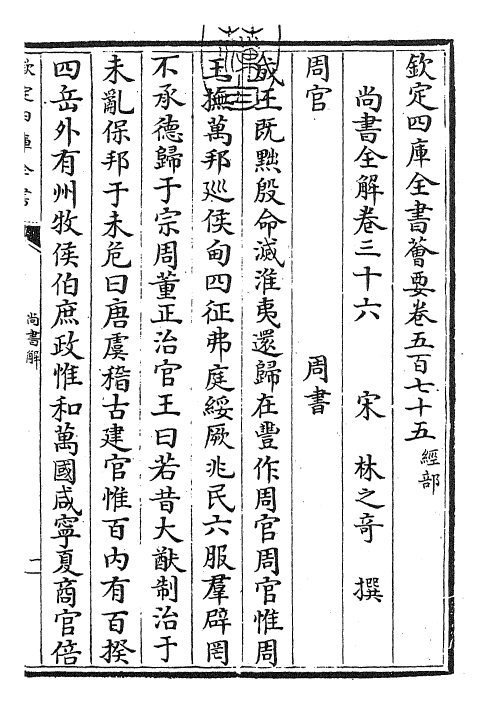 欽定四庫全書薈要卷五百七十五 經部
尚書全解卷三十六 宋 林之奇 撰
周官 周書
成王既黜殷命滅淮夷還歸在豐作周官周官惟周
王撫萬邦廵侯甸四征弗庭綏厥兆民六服羣辟罔
不承德歸于宗周董正治官王曰若昔大猷制治于
未亂保邦于未危曰唐虞稽古建官惟百内有百揆
四岳外有州牧侯伯庶政惟和萬國咸寧夏商官倍
欽定四庫全書
尚書解
一